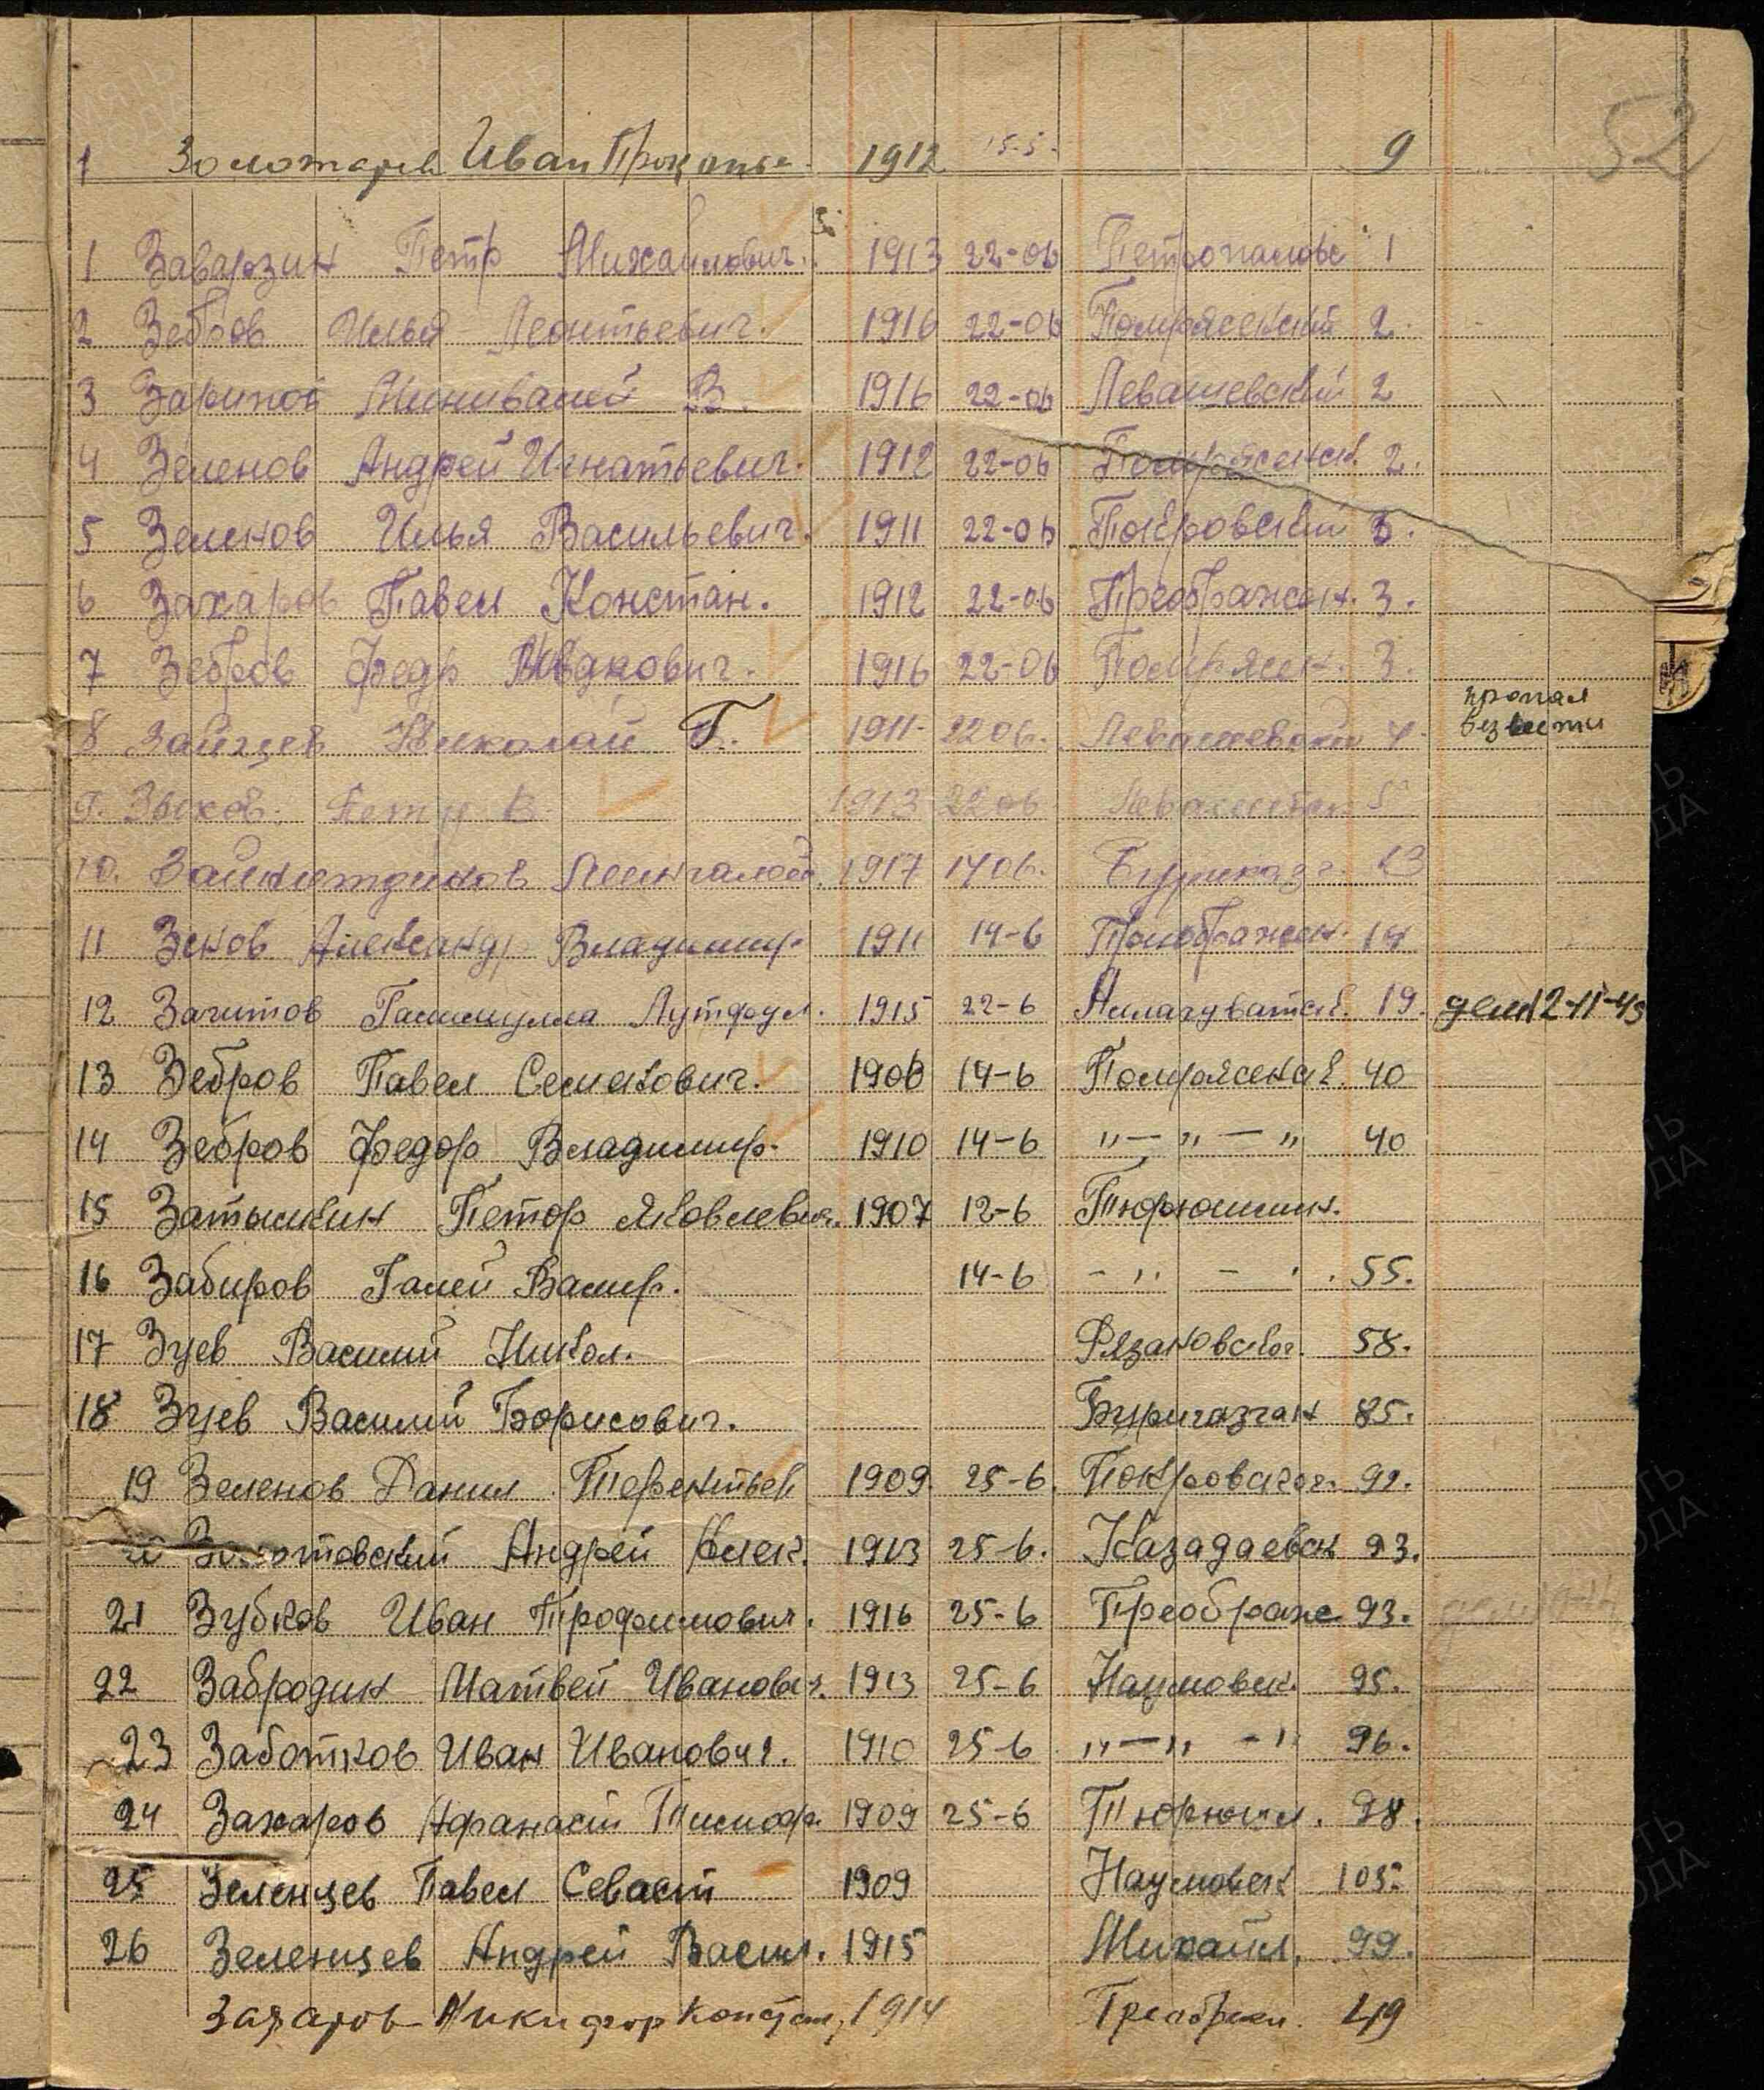 52
1 Золотарев Иван Прокопье. 1912 15-5. 9
1 Заварзин Петр Михайлович. 1913 22-06 Петропавловс 1
2 Зебров Илья Леонтьевич. 1916 22-06 Помряскинский 2.
3 Зарипов Минивалей В. 1916 22-06 Левашевский 2
4 Зеленов Андрей Игнатьевич. 1912 22-06 2.
5 Зеленов Илья Васильевич. 1911 22-06 Покровский 3.
6 Захаров Павел Констан. 1912 22-06 Преображен. 3.
7 Зебров Федр Иванович. 1916 22-06 Помряск. 3.
8 Зайцев Николай Г. 1911. 2206. Левашевский 4. пропал безвести
9. Зыков. Петр В. 1913 2206. 5
10. Зайнитдинов 1917 1406. Буриказг. 13
11 Зенов Александр Владимир 1911 14-6 Преображен. 19
12 Загитов Гашиулла Лутфул. 1915 22-6 19. дем 12-11-45
13 Зебров Павел Семенович. 1908 14-6 Помряскинск. 40
14 Зебров Федор Владимир. 1910 14-6 "-"-" 40
15 Затышкин Петор Яковлевич. 1907 12-6 Тюрюшлин.
16 Забиров Галей Валир. 14-6 -"- 55.
17 Зуев Василий Никол. Рязановског. 58.
18 Зуев Василий Борисович. Буриказган 85.
19 Зеленов Данил Терентьев 1909. 25-6. Покровског. 92.
20 Андрей Алек. 1913 25-6. Казадаевск 93.
21 Зубков Иван Трофимович. 1916 25-6 Преображе 93.
22 Забродин Матвей Иванович. 1913 25-6 Наумовск. 95.
23 Заботков Иван Иванович. 1910 25-6 "-" -" 96.
24 Захаров Афанасий Тимоф. 1909 25-6 Тюрюшл. 98.
25 Зеленцев Павел Севаст 1909 Наумовск 105.
26 Зеленцев Андрей Васил. 1915 Михайл. 99.
Захаров Никифор Констан, 1914 Преображ. 49